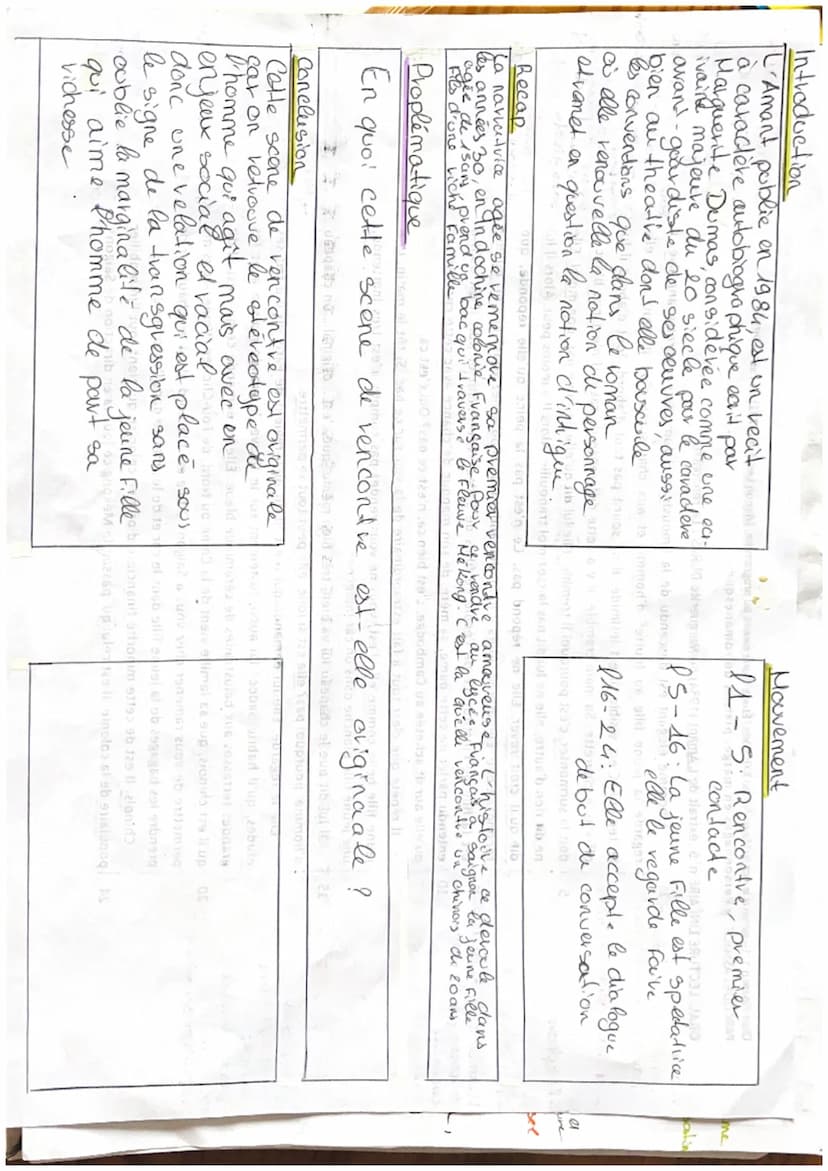 Introduction
L'Amant publié en 1984, est un recit
à caractère autobiographique ecrit par
Marguerite Dumas, considérée comme une ecri-
vaine majeure du 20 siecle par le caractère
avant-gardiste de ses œuvres, aussi
bien au theatre dont elle bouscule
les conventions que dans le roman
où elle renouvelle la notion de personnage
et remet en question la notion d'intrigue.
Mouvement
l1 - 5: Rencontre, premier
contacte
l5-16: La jeune fille est spectatrice
elle le regarde faire
l16-24: Elle accepte le dialogue
debut de conversation
Recap
La narratrice agée se rememore sa premier rencontre amoureuse. L'histoire ce deroule dans
les années 30, en Indochine colonie Française. Pour ce rendre au lycée Français à Saigon la jeune fille
agée de 15ans, prend un bac qui traverse le fleuve Mékong. C'est là qu'elle rencontre un chinois de 20ans
fils d'une riche famille
Proplématique
En quoi cette scène de rencontre est-elle originaale ?
Conclusion
Cette scène de rencontre est originale
car on retrouve le stéréotype de
l'homme qui agit mais avec en
enjeux social et racial
donc une relation qui est placé sous
le signe de la transgression sans
oublie la marginalité de la jeune fille
qui aime l'homme de part sa
richesse.